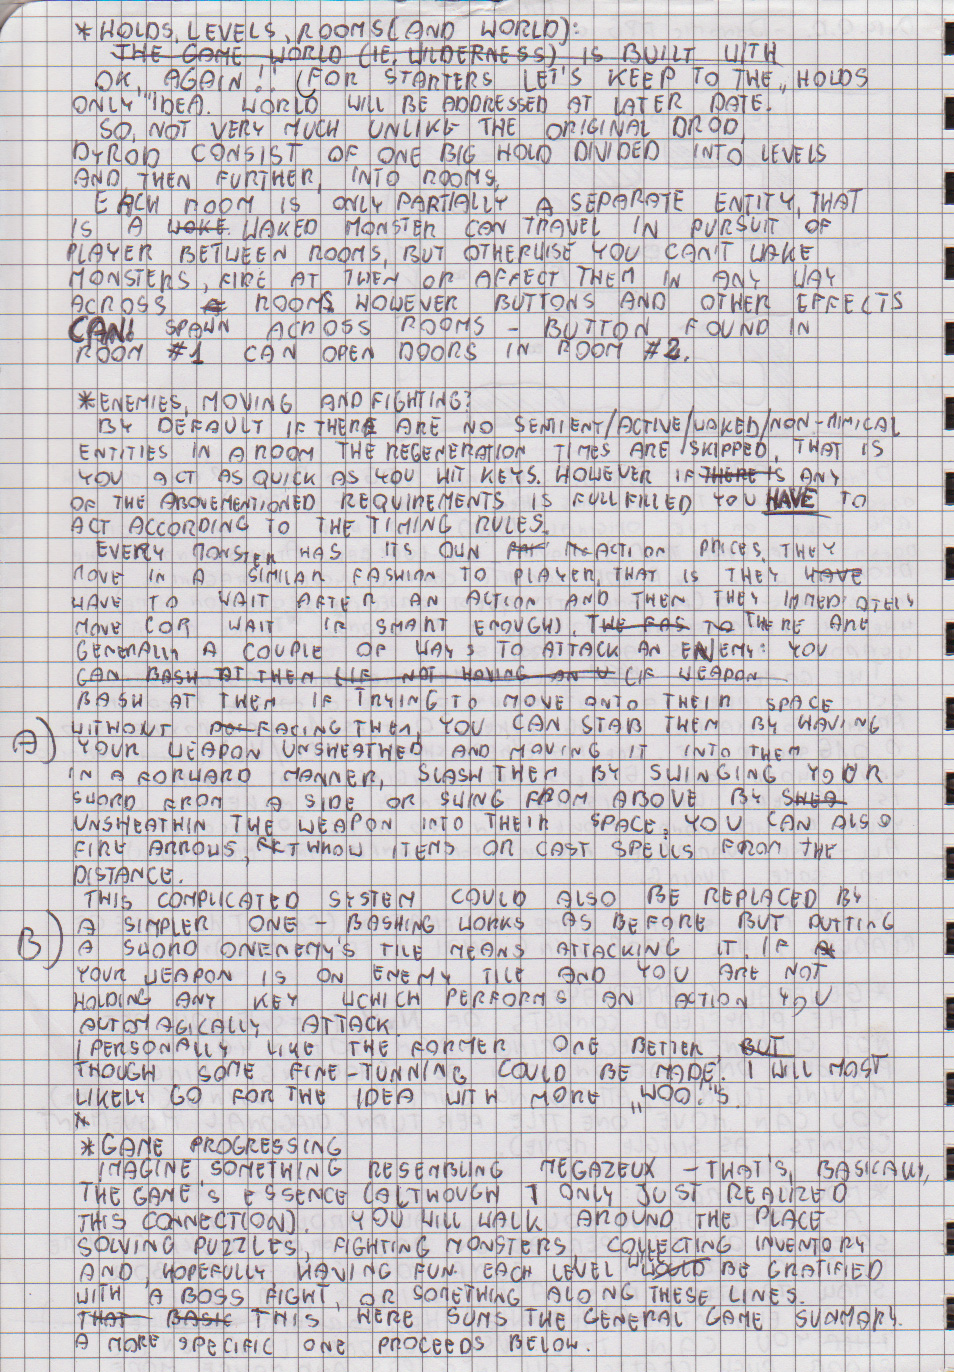 *HOLDS, LEVELS, ROOMS(AND WORLD):
THE GAME WORLD (IE. WILDERNESS) IS BUILT WITH
OK, AGAIN!! (FOR STARTERS LET'S KEEP TO THE „HOLDS
ONLY" IDEA. WORLD WILL BE ADDRESSED AT LATER DATE.
SO, NOT VERY MUCH UNLIKE THE ORIGINAL DROD,
DYROD CONSIST OF ONE BIG HOLD DIVIDED INTO LEVELS
AND, THEN FURTHER, INTO ROOMS.
EACH ROOM IS ONLY PARTIALLY A SEPARATE ENTITY, THAT
IS A WOKE WAKED MONSTER CAN TRAVEL IN PURSUIT OF
PLAYER BETWEEN ROOMS, BUT OTHERWISE YOU CAN'T WAKE
MONSTERS, FIRE AT THEM OR AFFECT THEM IN ANY WAY
ACROSS ROOMS. HOWEVER BUTTONS AND OTHER EFFECTS
CAN! SPAWN ACROSS ROOMS - BUTTON FOUND IN
ROOM #1 CAN OPEN DOORS IN ROOM #2.
*ENEMIES, MOVING AND FIGHTING?
BY DEFAULT IF THERE ARE NO SENTIENT/ACTIVE/WAKED/NON-MIMICAL
ENTITIES IN A ROOM THE REGENERATION TIMES ARE SKIPPED, THAT IS
YOU ACT AS QUICK AS YOU HIT KEYS. HOWEVER IF THERE IS ANY
OF THE ABOVEMENTIONED REQUIREMENTS IS FULLFILLED YOU HAVE TO
ACT ACCORDING TO THE TIMING RULES.
EVERY MONSTER HAS ITS OWN ACTION PRICES. THEY
MOVE IN A SIMILAR FASHION TO PLAYER, THAT IS THEY HAVE
HAVE TO WAIT AFTER AN ACTION AND THEN THEY IMMEDIATELY
MOVE (OR WAIT IF SMART ENOUGH). THE FAS TO THERE ARE
GENERALLY A COUPLE OF WAYS TO ATTACK AN ENEMY: YOU
CAN BASH AT THEM (IF NOT HAVING AN U (IF WEAPON
BASH AT THEM IF TRYING TO MOVE ONTO THEIR SPACE
A) WITHOUT FACING THEM, YOU CAN STAB THEM BY HAVING
YOUR WEAPON UNSHEATHED AND MOVING IT INTO THEM
IN A FORWARD MANNER, SLASH THEM BY SWINGING YOUR
SWORD FROM A SIDE OR SWING FROM ABOVE BY SHEA
UNSHEATHIN THE WEAPON INTO THEIR SPACE. YOU CAN ALSO
FIRE ARROWS, THROW ITEMS OR CAST SPELLS FROM THE
DISTANCE.
THIS COMPLICATED SYSTEM COULD ALSO BE REPLACED BY
B) A SIMPLER ONE - BASHING WORKS AS BEFORE BUT PUTTING
A SWORD ON ENEMY'S TILE MEANS ATTACKING IT. IF A
YOUR WEAPON IS ON ENEMY TILE AND YOU ARE NOT
HOLDING ANY KEY WCHICH PERFORMS AN ACTION YOU
AUTOMAGICALLY ATTACK.
I PERSONALLY LIKE THE FORMER ONE BETTER, BUT
THOUGH SOME FINE-TUNNING COULD BE MADE. I WILL MOST
LIKELY GO FOR THE IDEA WITH MORE „WOO!"S.
*
*GAME PROGRESSING
IMAGINE SOMETHING RESEMBLING MEGAZEUX - THAT'S, BASICALLY,
THE GAME'S ESSENCE (ALTHOUGH I ONLY JUST REALIZED
THIS CONNECTION). YOU WILL WALK AROUND THE PLACE
SOLVING PUZZLES, FIGHTING MONSTERS, COLLECTING INVENTORY
AND, HOPEFULLY, HAVING FUN. EACH LEVEL WILL WOULD BE GRATIFIED
WITH A BOSS FIGHT, OR SOMETHING ALONG THESE LINES.
THAT BASIC THIS HERE SUMS THE GENERAL GAME SUMMARY.
A MORE SPECIFIC ONE PROCEEDS BELOW.